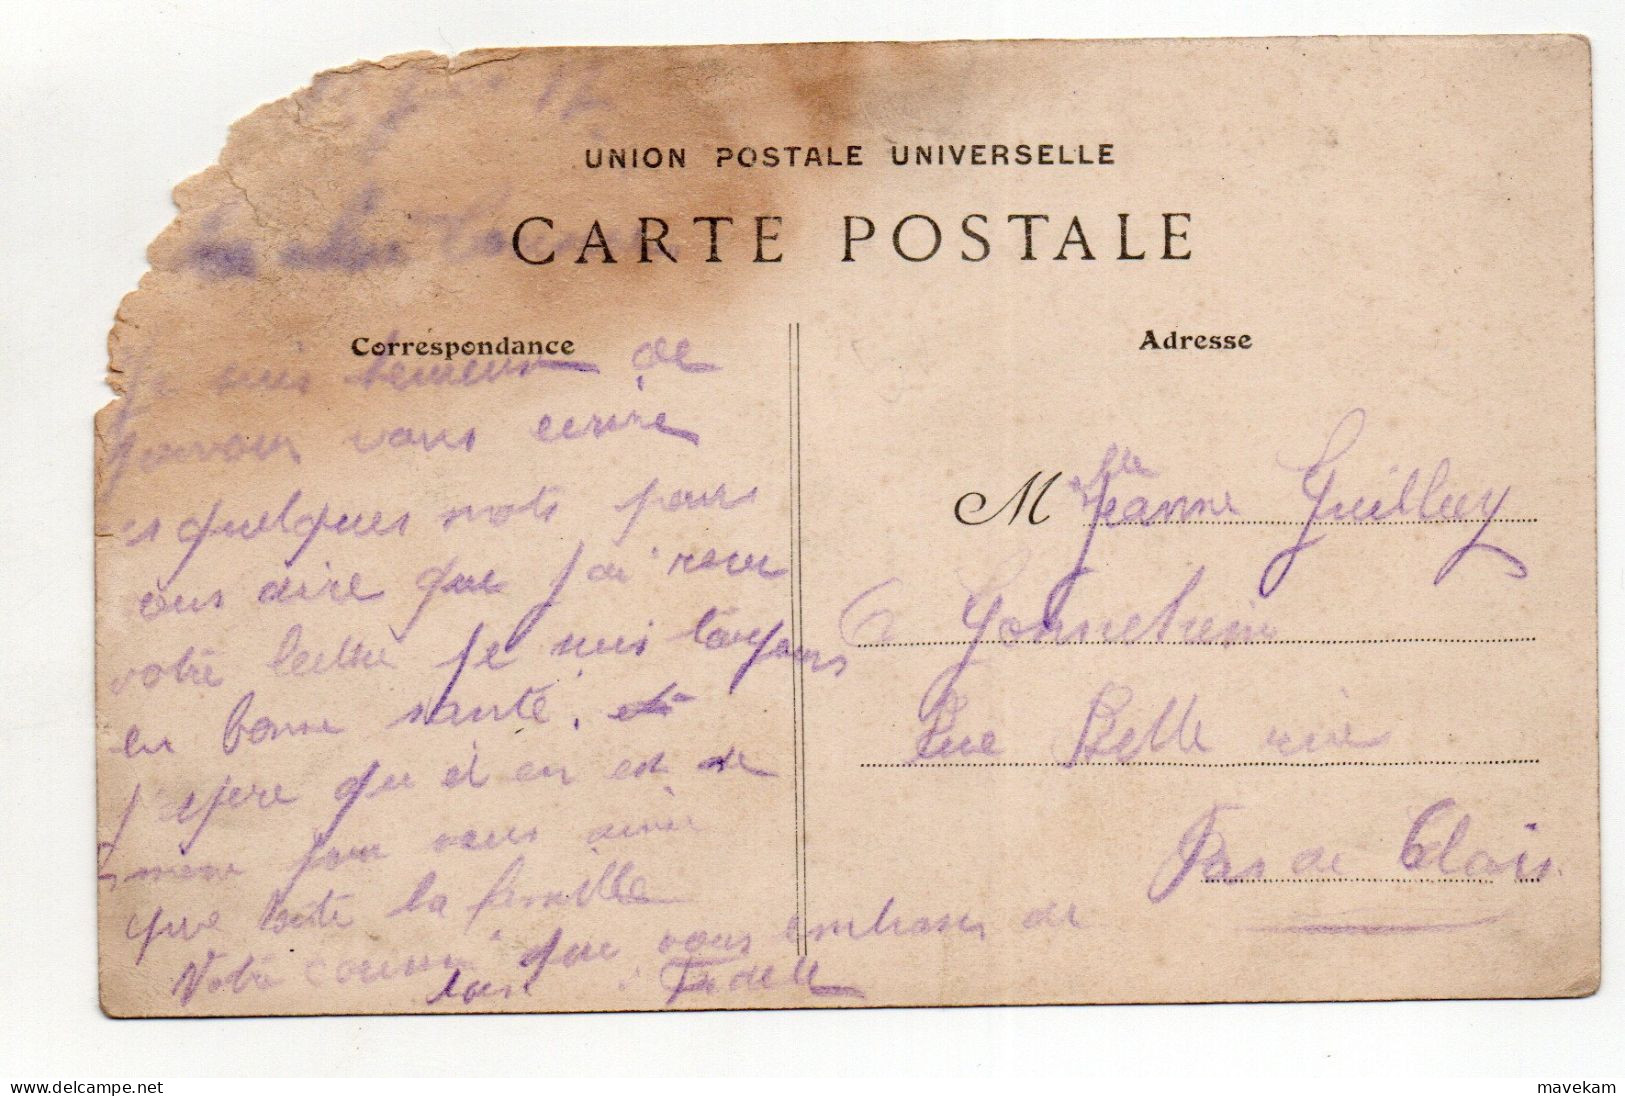 17
UNION POSTALE UNIVERSELLE
CARTE POSTALE
Correspondance
Je suis heureux de
pouvoir vous ecrire
ces quelques mots pour
vous dire que j'ai recu
votre lettre je suis toujours
en bonne santé. et
j'espere qu'il en est de
meme pour vous ainsi
que toute la famille
Votre cousin que vous embrasse de
loin
Adresse
Mlle Jeanne Guilluy
a Gonnehem
Rue Belle rive
Pas de Calais
delcampe.net
mavekam